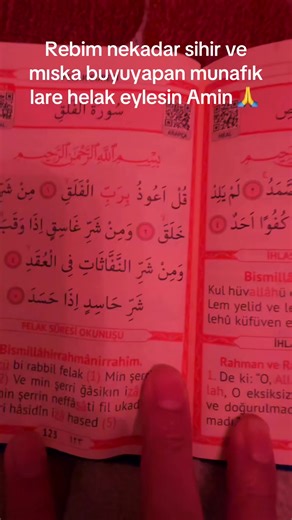 Rebim nekadar sihir ve
mıska buyuyapan munafık
lare helak eylesin Amin 🙏
سُورَةُ الْفَلَقِ
بِسْمِ اللّٰهِ الرَّحْمٰنِ الرَّحِيمِ
قُلْ اَعُوذُ بِرَبِّ الْفَلَقِ ﴿١﴾ مِنْ شَرِّ
خَلَقَ ﴿٢﴾ وَمِنْ شَرِّ غَاسِقٍ اِذَا وَقَبَ
وَمِنْ شَرِّ النَّفَّاثَاتِ فِى الْعُقَدِ
شَرِّ حَاسِدٍ اِذَا حَسَدَ
FELAK SÛRESİ OKUNUŞU
Bismillâhirrahmânirrahîm.
bi rabbil felak (1) Min şerri
Ve min şerri ğâsikın izâ
min şerrin neffâsâti fil ukad
hâsidin izâ hased (5)
123 ١٢٣
لَمْ يَلِدْ
كُفُوًا اَحَدٌ
İHLAS
Bismill
Kul hüvallâhü
Lem yelid ve le
lehû küfüven e
İHL
Rahman ve Ra
1. De ki: "O, All
lah, O eksiksiz
ve doğurulma